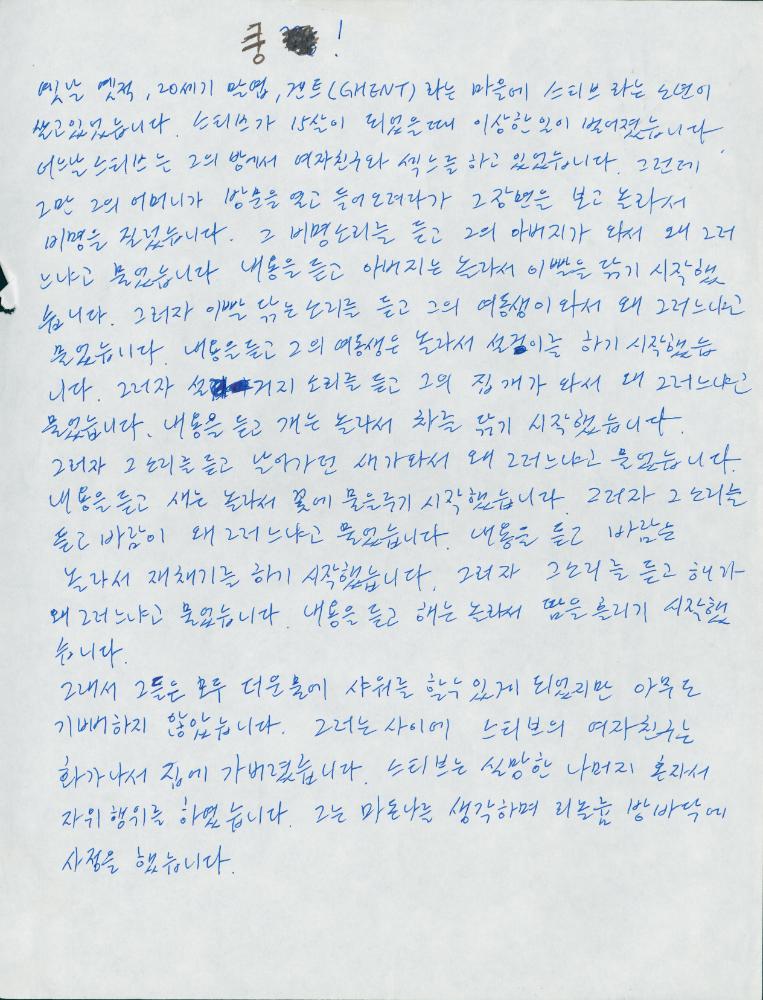 쿵 !
옛날 옛적, 20세기 말엽, 겐트(GHENT)라는 마을에 스티브라는 소년이
살고있었습니다. 스티브가 15살이 되었을때 이상한일이 벌어졌습니다.
그런데
그만 그의 어머니가 방문을 열고 들어오려다가 그장면을 보고 놀라서
비명을 질렀습니다. 그 비명소리를 듣고 그의 아버지가 와서 왜 그러
느냐고 물었습니다 내용을 듣고 아버지는 놀라서 이빨을 닦기 시작했
습니다. 그러자 이빨 닦는 소리를 듣고 그의 여동생이 와서 왜 그러느냐고
물었습니다. 내용을듣고 그의 여동생은 놀라서 설겆이를 하기 시작했습
니다. 그러자 설거지 소리를 듣고 그의 집 개가 와서 왜 그러느냐고
물었습니다. 내용을 듣고 개는 놀라서 차를 닦기 시작했습니다.
그러자 그소리를 듣고 날아가던 새가와서 왜 그러느냐고 물었습니다.
내용을듣고 새는 놀라서 꽃에 물을주기 시작했습니다. 그러자 그소리를
듣고 바람이 왜 그러느냐고 물었습니다. 내용을 듣고 바람은
놀라서 재채기를 하기 시작했습니다. 그러자 그소리를 듣고 해가
왜 그러느냐고 물었습니다. 내용을 듣고 해는 놀라서 땀을 흘리기 시작했
습니다.
그래서 그들은 모두 더운물에 샤워를 할수있게 되었지만 아무도
기뻐하지 않았습니다. 그러는 사이에 스티브의 여자친구는
화가나서 집에 가버렸습니다.